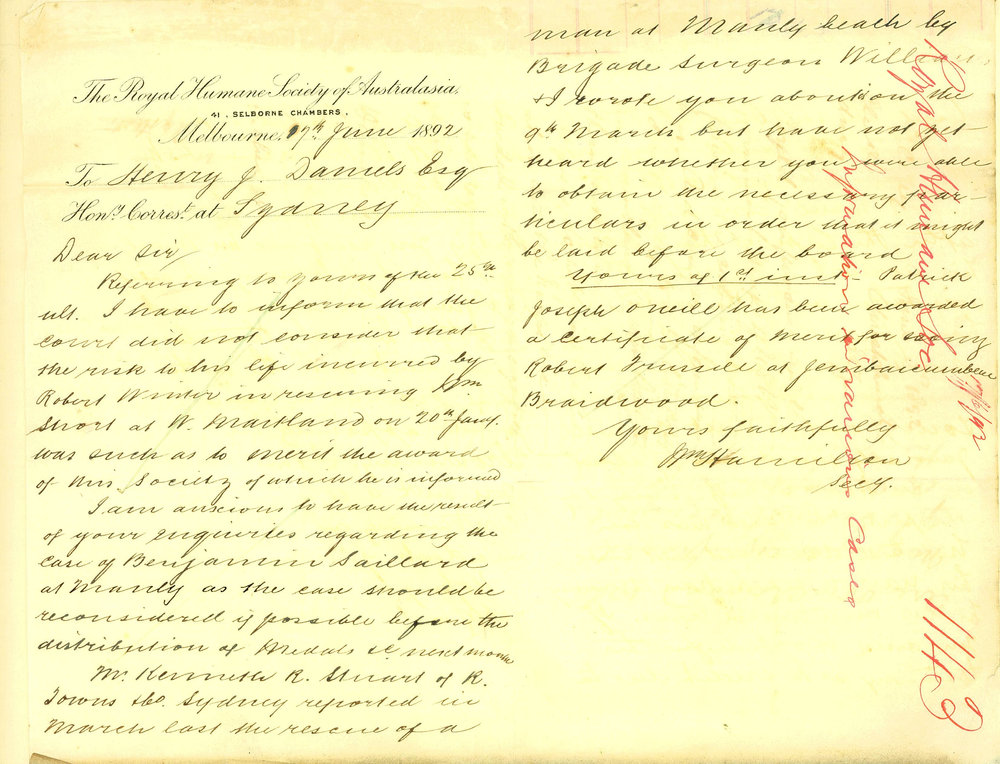 The Royal Humane Society of Australasia.
41, SELBORNE CHAMBERS,
Melbourne, 17th June 1892
To Henry J. Daniels Esq
Hony. Correst. at Sydney
Dear Sir
Referring to yours of the 25th
ult. I have to inform that the
Court did not consider that
the risk to his life incurred by
Robert Winter in rescuing Wm
Short at W. Maitland on 20th Jany.
was such as to merit the award
of this Society of which he is informed
I am anxious to have the result
of your enquiries regarding the
case of Benjamin Saillard
at Manly as the case should be
reconsidered if possible before the
distribution of Medals &c next month
Mr. Kenneth R. Stuart of R.
Towns &Co. Sydney reported in
March last the rescue of a
man at Manly beach by
Brigade Surgeon Williams
& I wrote you about on the
9th March but have not yet
heard whether you were able
to obtain the necessary par-
ticulars in order that it might
be laid before the board
Yours of 1st inst. Patrick
Joseph Oneill has been awarded
a Certificate of Merit for saving
Robert Trussell at Jembaicumbene
Braidwood.
Yours faithfully
Wm Hamilton
Secy.
Royal Humane Soc 17/6/92
Information re various Cases
1143